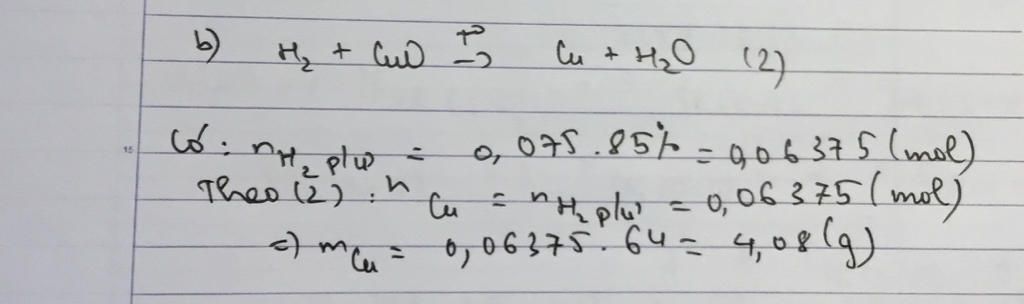 b) H₂ + CuO t° → Cu + H₂O (2)
Có: nH₂ p/ư = 0,075.85% = 0,06375 (mol)
Theo (2): nCu = nH₂ p/ư = 0,06375 (mol)
=) mCu = 0,06375.64 = 4,08 (g)